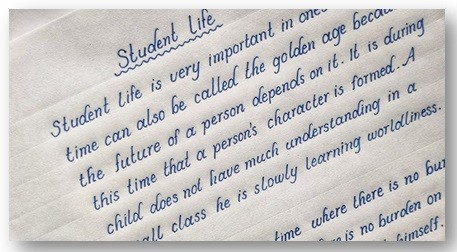 Student Life
Student life is very important in
time can also be called the golden age
the future of a person depends on it. It is during
this time that a person's character is formed. A
child does not have much understanding in a
class he is slowly learning worldliness.
time where there is no
is no burden on
himself.